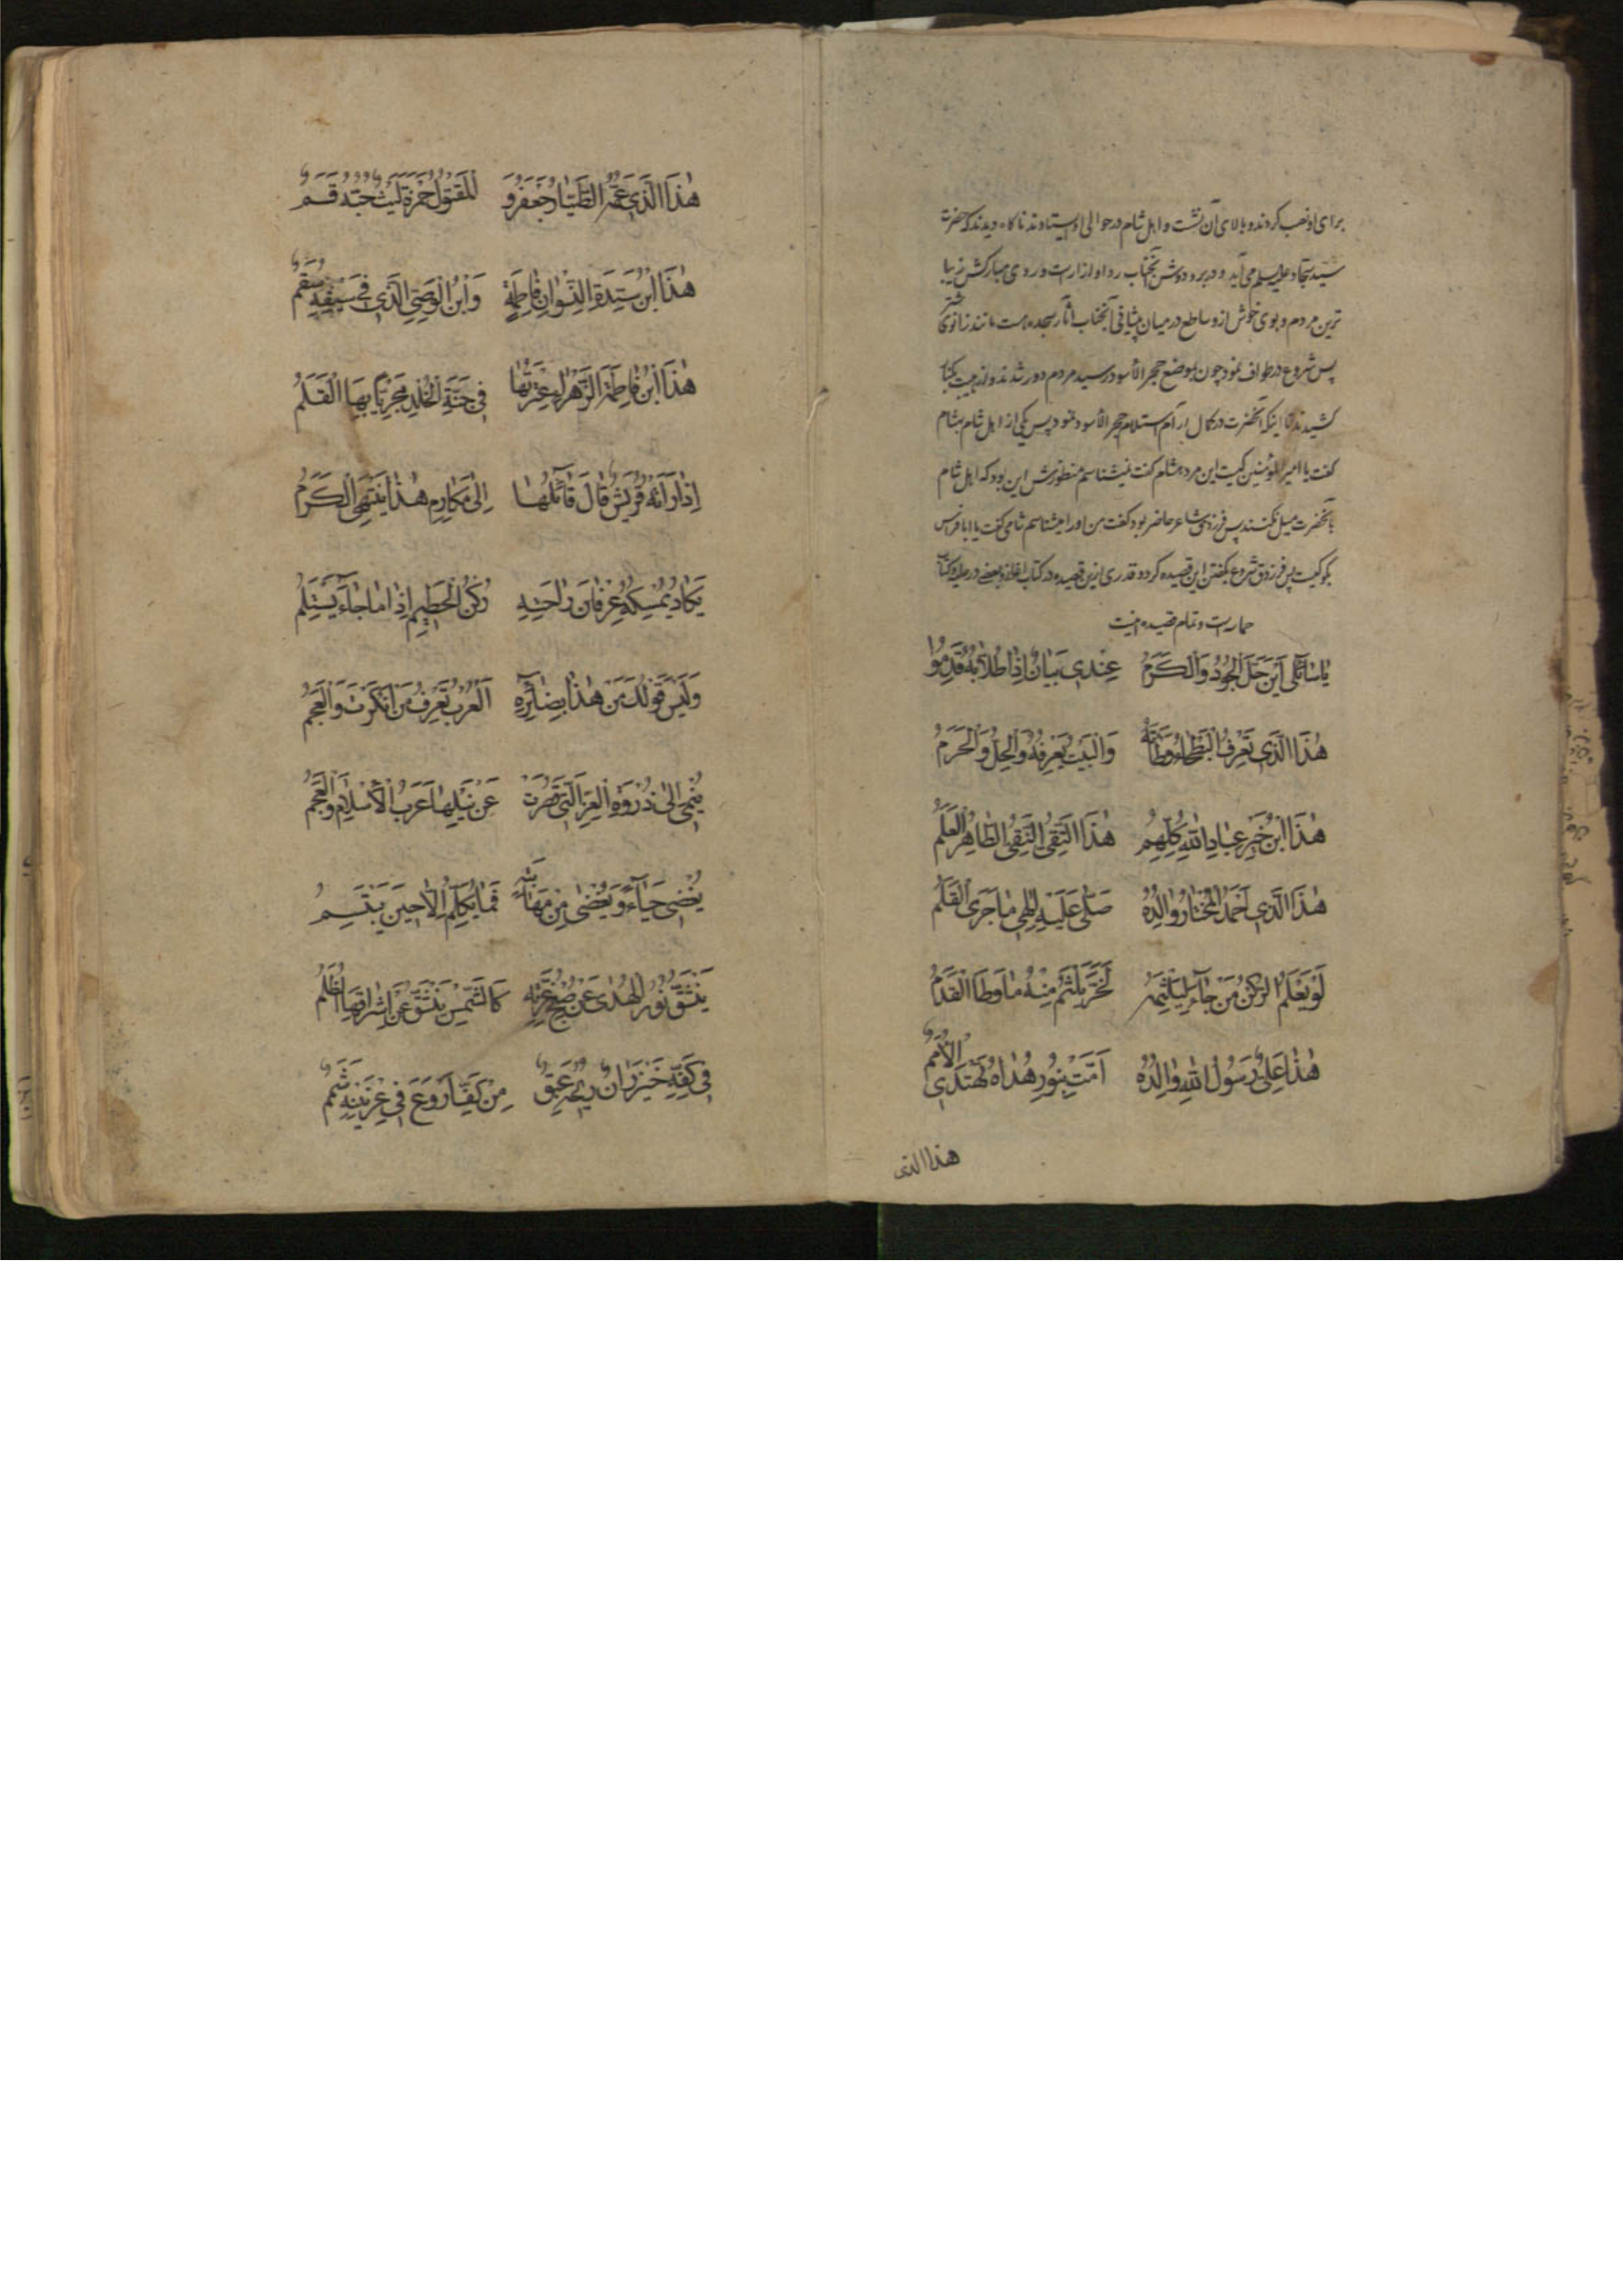 برای او نصب کردند و بالای آن نشست و اهل شام در حوالی او ایستادند ناگاه دیدند که حضرت
سید سجاد علیه السلام می آید و در بر و دوش آنجناب ردا و ازار است و روی مبارکش زیبا
ترین مردم و بوی خوش از و ساطع در میان پیشانی آنجناب آثار سجده است مانند زانوی شتر
پس شروع در طواف نمود چون بموضع حجر الأسود رسید مردم دور شدند و از هیبت
کشیدند تا اینکه آنحضرت در کمال آرام استلام حجر الأسود نمود پس یکی از اهل شام بهشام
گفت یا امیر المؤمنین کیست این مرد هشام گفت نمیشناسم منظورش این بود که اهل شام
بآنحضرت میل نکنند پس فرزدق شاعر حاضر بود گفت من اورا میشناسم شامی گفت یا ابا فراس
بگو کیست پس فرزدق شروع بگفتن این قصیده کرد و قدری ازین قصیده در کتاب اغانی و بعضی در حلیه و کتاب
حماسه است و تمام قصیده اینست
یٰا سٰائِلی اَیْنَ حَلَّ الْجُودُ وَالْکَرَمُ عِنْدی بَیٰانٌ اِذٰا طُلّٰابُهُ قَدِمُوا
هٰذَا الَّذی تَعْرِفُ الْبَطْحٰاءُ وَطْأَتَهُ وَالْبَیْتُ یَعْرِفُهُ وَالْحِلُّ وَالْحَرَمُ
هٰذَا ابْنُ خَیْرِ عِبٰادِ اللهِ کُلِّهِمُ هٰذَا التَّقِیُّ النَّقِیُّ الطّٰاهِرُ الْعَلَمُ
هٰذَا الَّذی اَحْمَدُ الْمُخْتٰارُ وٰالِدُهُ صَلّٰی عَلَیْهِ اِلٰهی مٰا جَرَی الْقَلَمُ
لَوْ یَعْلَمُ الرُّکْنُ مَنْ جٰاءَ لِیَلْثِمَهُ لَخَرَّ یَلْثَمُ مِنْهُ مٰا وَطَأَ الْقَدَمُ
هٰذٰا عَلِیٌّ رَسُولُ اللهِ وٰالِدُهُ اَمَّتْ بِنُورِ هُدٰاهُ تَهْتَدِی الْأُمَمُ
هذا الذی
هٰذَا الَّذی عَمُّهُ الطَّیّٰارُ جَعْفَرُ وَ الْمَقْتُولُ حَمْزَةُ لَیْثٌ حُبُّهُ قَسَمٌ
هٰذَا ابْنُ سَیِّدَةِ النِّسْوٰانِ فٰاطِمَةٍ وَابْنُ الْوَصِیِّ الَّذی فی سَیْفِهِ سَقَمٌ
هٰذَا ابْنُ فٰاطِمَةَ الزَّهْرٰا وَعِتْرَتِهٰا فی جَنَّةِ الْخُلْدِ مَجْرِیًّا بِهَا الْقَلَمُ
اِذٰا رَأَتْهُ قُرَیْشٌ قٰالَ قٰائِلُهٰا اِلٰی مَکٰارِمِ هٰذٰا یَنْتَهِی الْکَرَمُ
یَکٰادُ یُمْسِکُهُ عِرْفٰانَ رٰاحَتِهِ رُکْنُ الْحَطیمِ اِذٰا مٰا جٰاءَ یَسْتَلِمُ
وَلَیْسَ قَوْلُکَ مَنْ هٰذٰا بِضٰائِرِهِ اَلْعُرْبُ تَعْرِفُ مَنْ اَنْکَرْتَ وَالْعَجَمُ
یُنْمیٰ اِلٰی ذُرْوَةِ الْعِزِّ الَّتی قَصُرَتْ عَنْ نَیْلِهٰا عَرَبُ الْأَسْلٰامِ وَالْعَجَمُ
یُغْضی حَیٰاءً وَیُغْضٰی مِنْ مَهٰابَتِهِ فَمٰا یُکَلَّمُ اِلّٰا حینَ یَبْتَسِمُ
یَنْشَقُّ نُورُ الْهُدٰی عَنْ صُبْحِ غُرَّتِهِ کَالشَّمْسِ یَنْشَقُّ عَنْ اِشْرٰاقِهَا الظُّلَمُ
فی کَفِّهِ خَیْزَرٰانٌ ریحُهُ عَبِقٌ مِنْ کَفِّ اَرْوَعَ فی عِرْنینِهِ شَمَمٌ